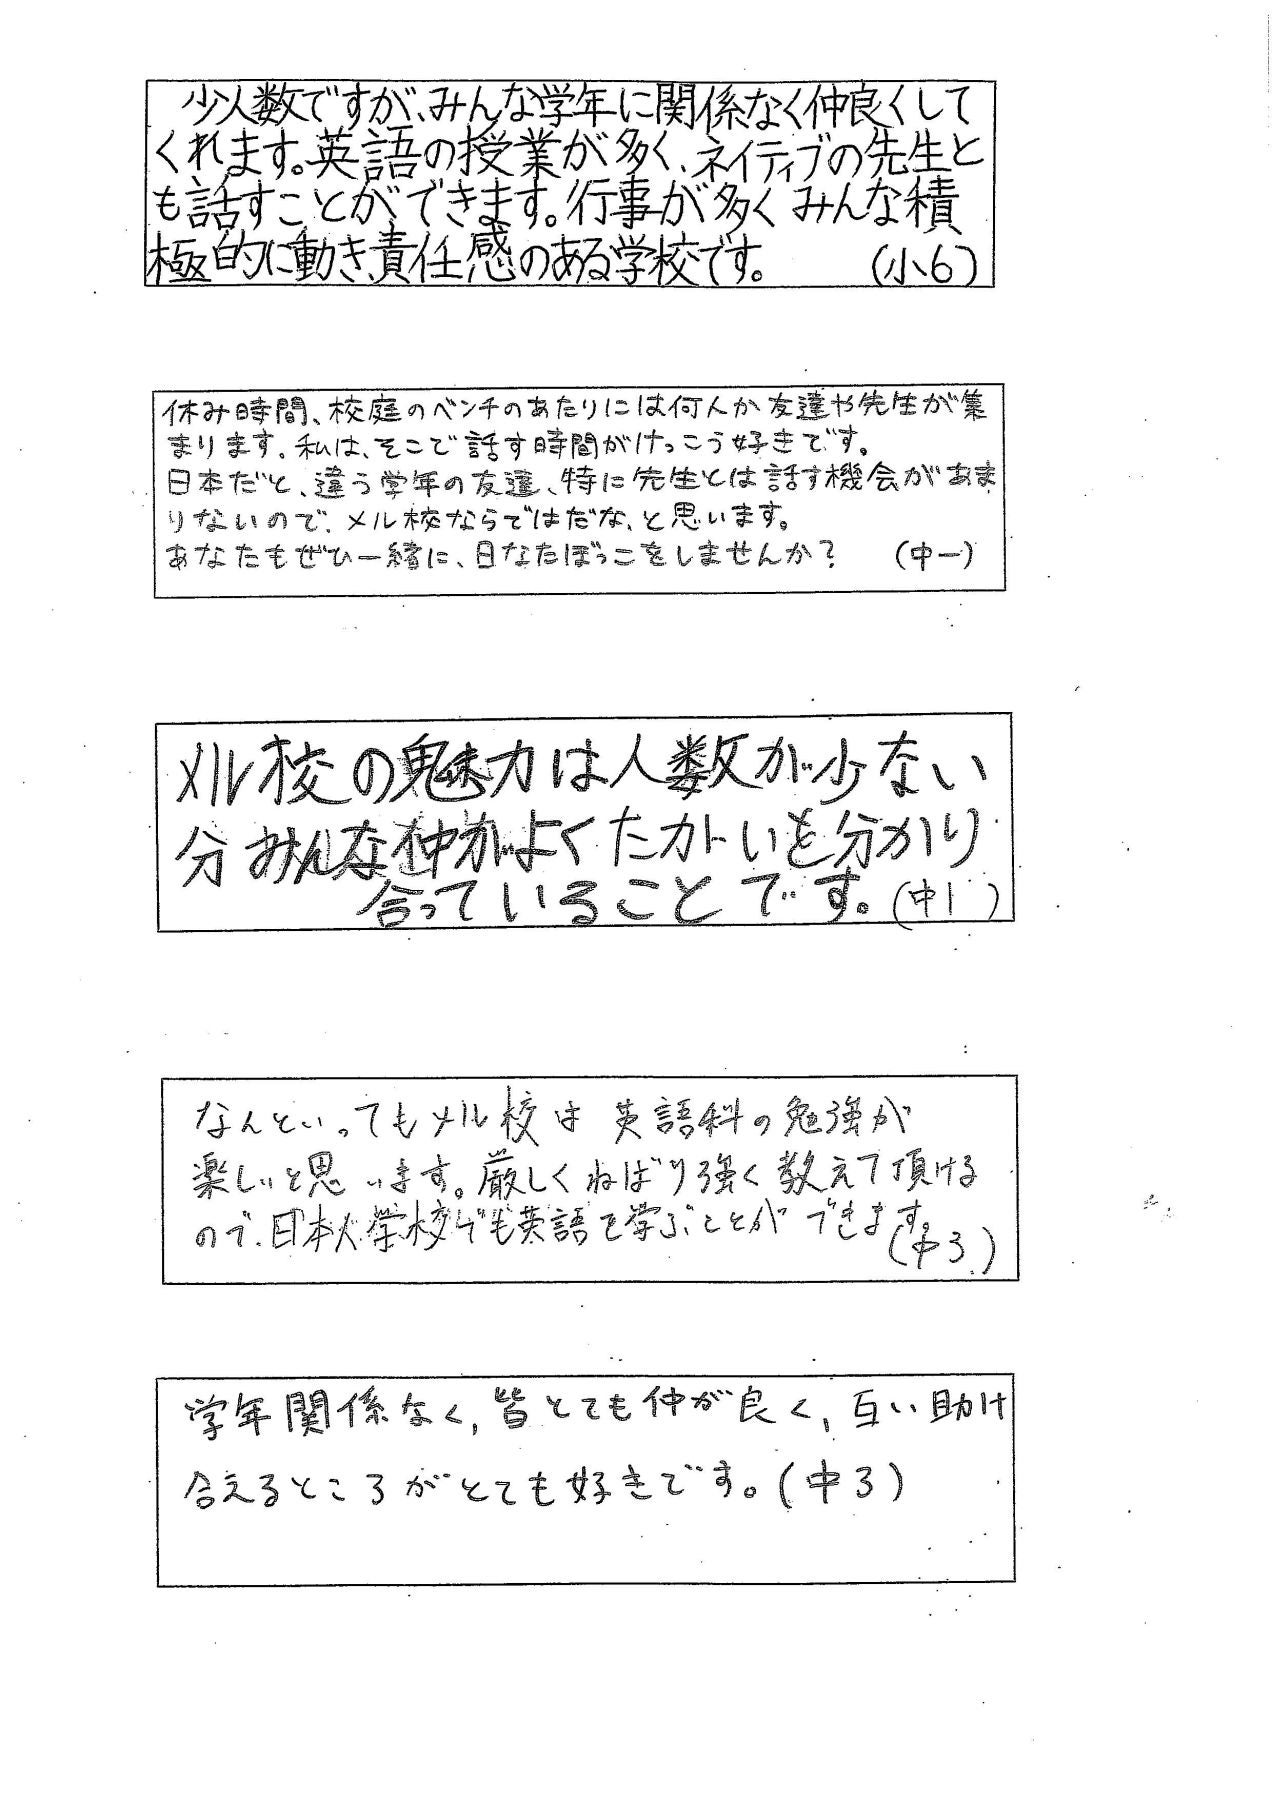 少人数ですが、みんな学年に関係なく仲良くして
くれます。英語の授業が多く、ネイティブの先生と
も話すことができます。行事が多くみんな積
極的に動き、責任感のある学校です。 (小6)
休み時間、校庭のベンチのあたりには何人か友達や先生が集
まります。私は、そこで話す時間がけっこう好きです。
日本だと、違う学年の友達、特に先生とは話す機会があま
りないので、メル校ならではだな、と思います。
あなたもぜひ一緒に、日なたぼっこをしませんか? (中一)
メル校の魅力は人数が少ない
分みんな仲がよくたがいを分かり
合っていることです。(中1)
なんといってもメル校は英語科の勉強が
楽しいと思います。厳しくねばり強く教えて頂ける
ので、日本人学校でも英語を学ぶことができます。
(中3)
学年関係なく、皆とても仲が良く、互い助け
合えるところがとても好きです。(中3)